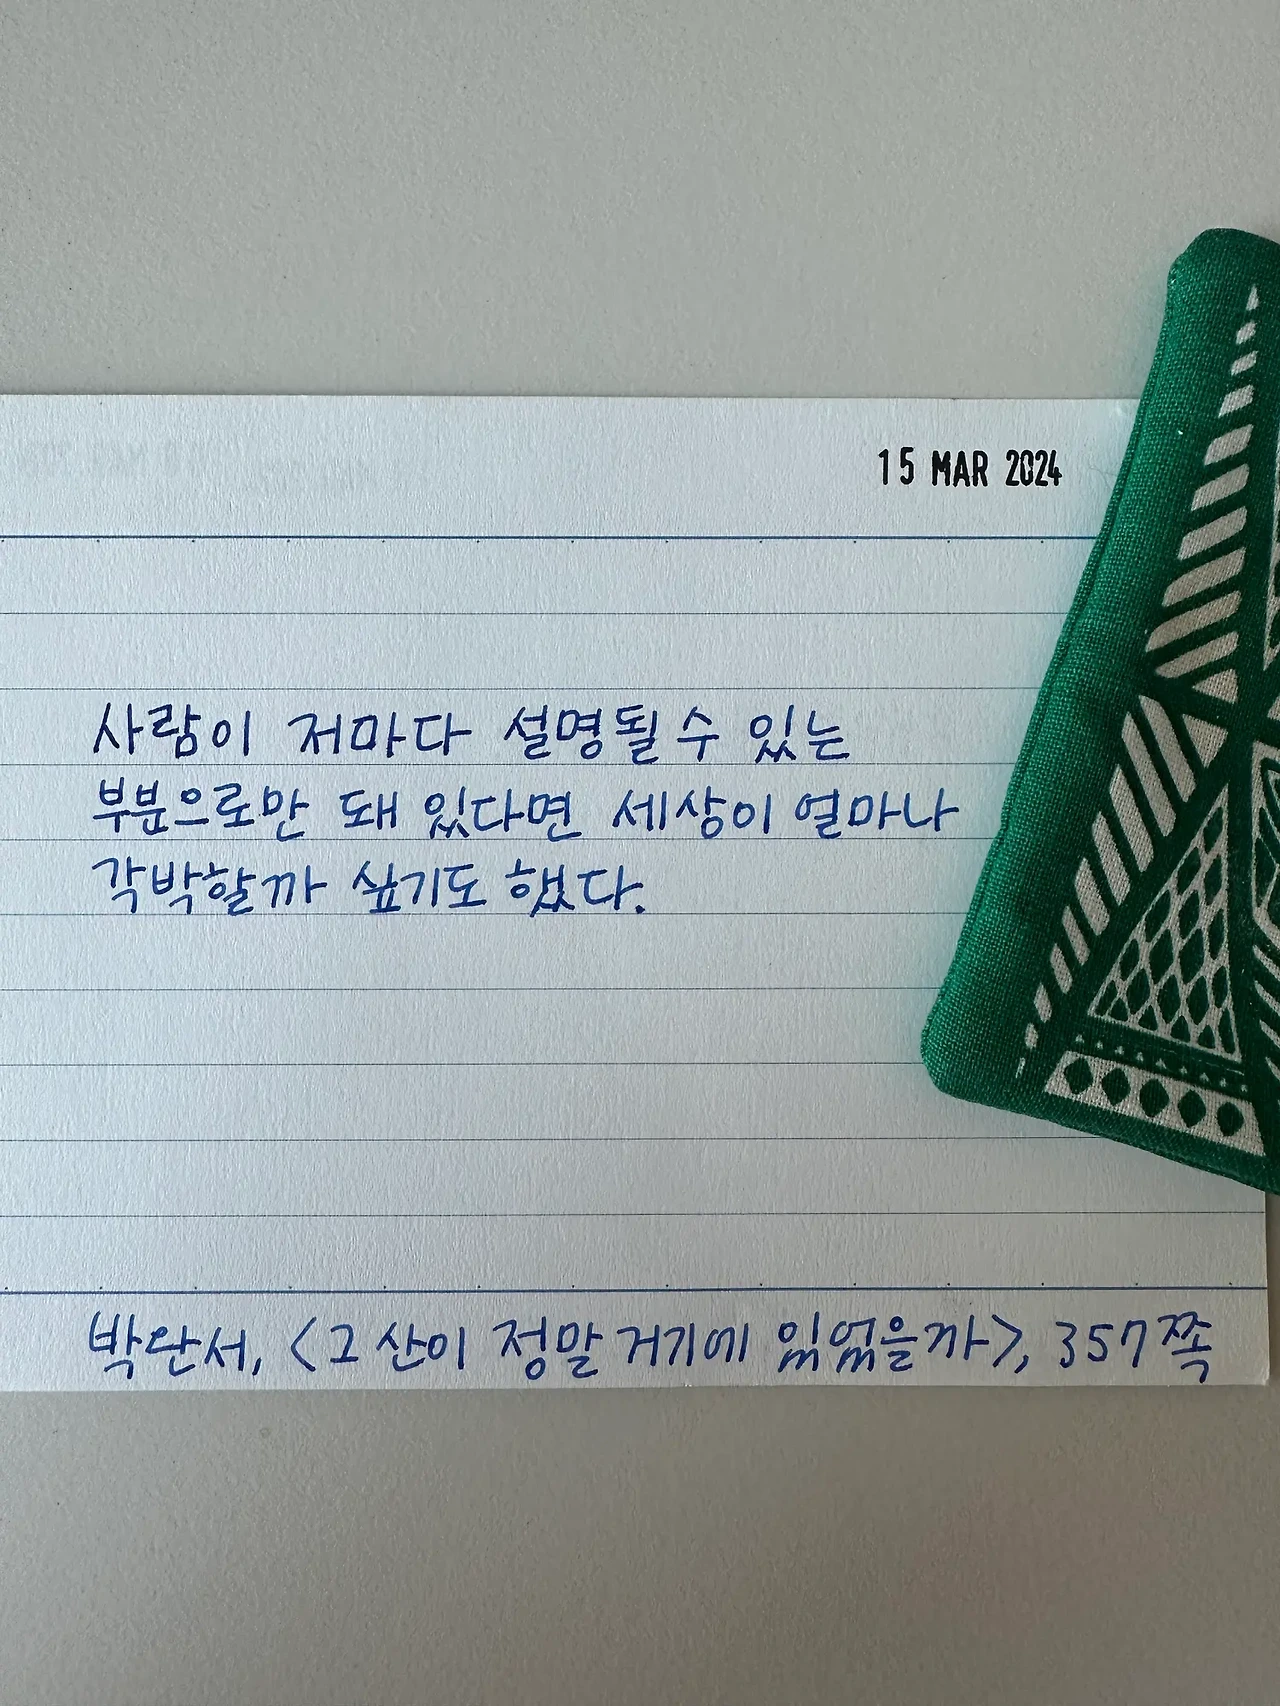 15 MAR 2024
사람이 저마다 설명될 수 있는
부분으로만 돼 있다면 세상이 얼마나
각박할까 싶기도 했다.
박완서, <그 산이 정말 거기에 있었을까>, 357쪽